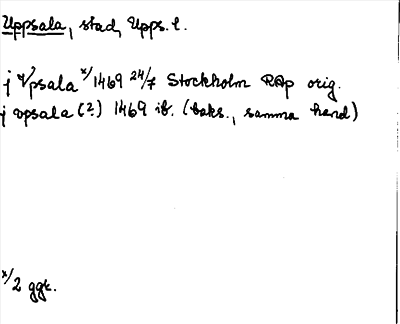 Uppsala, stad, Upps. l.
j Vpsala x/ 1469 24/7 Stockholm RAp orig.
j vpsala (?) 1469 ib. (baks., samma hand)
x/ 2 ggr.